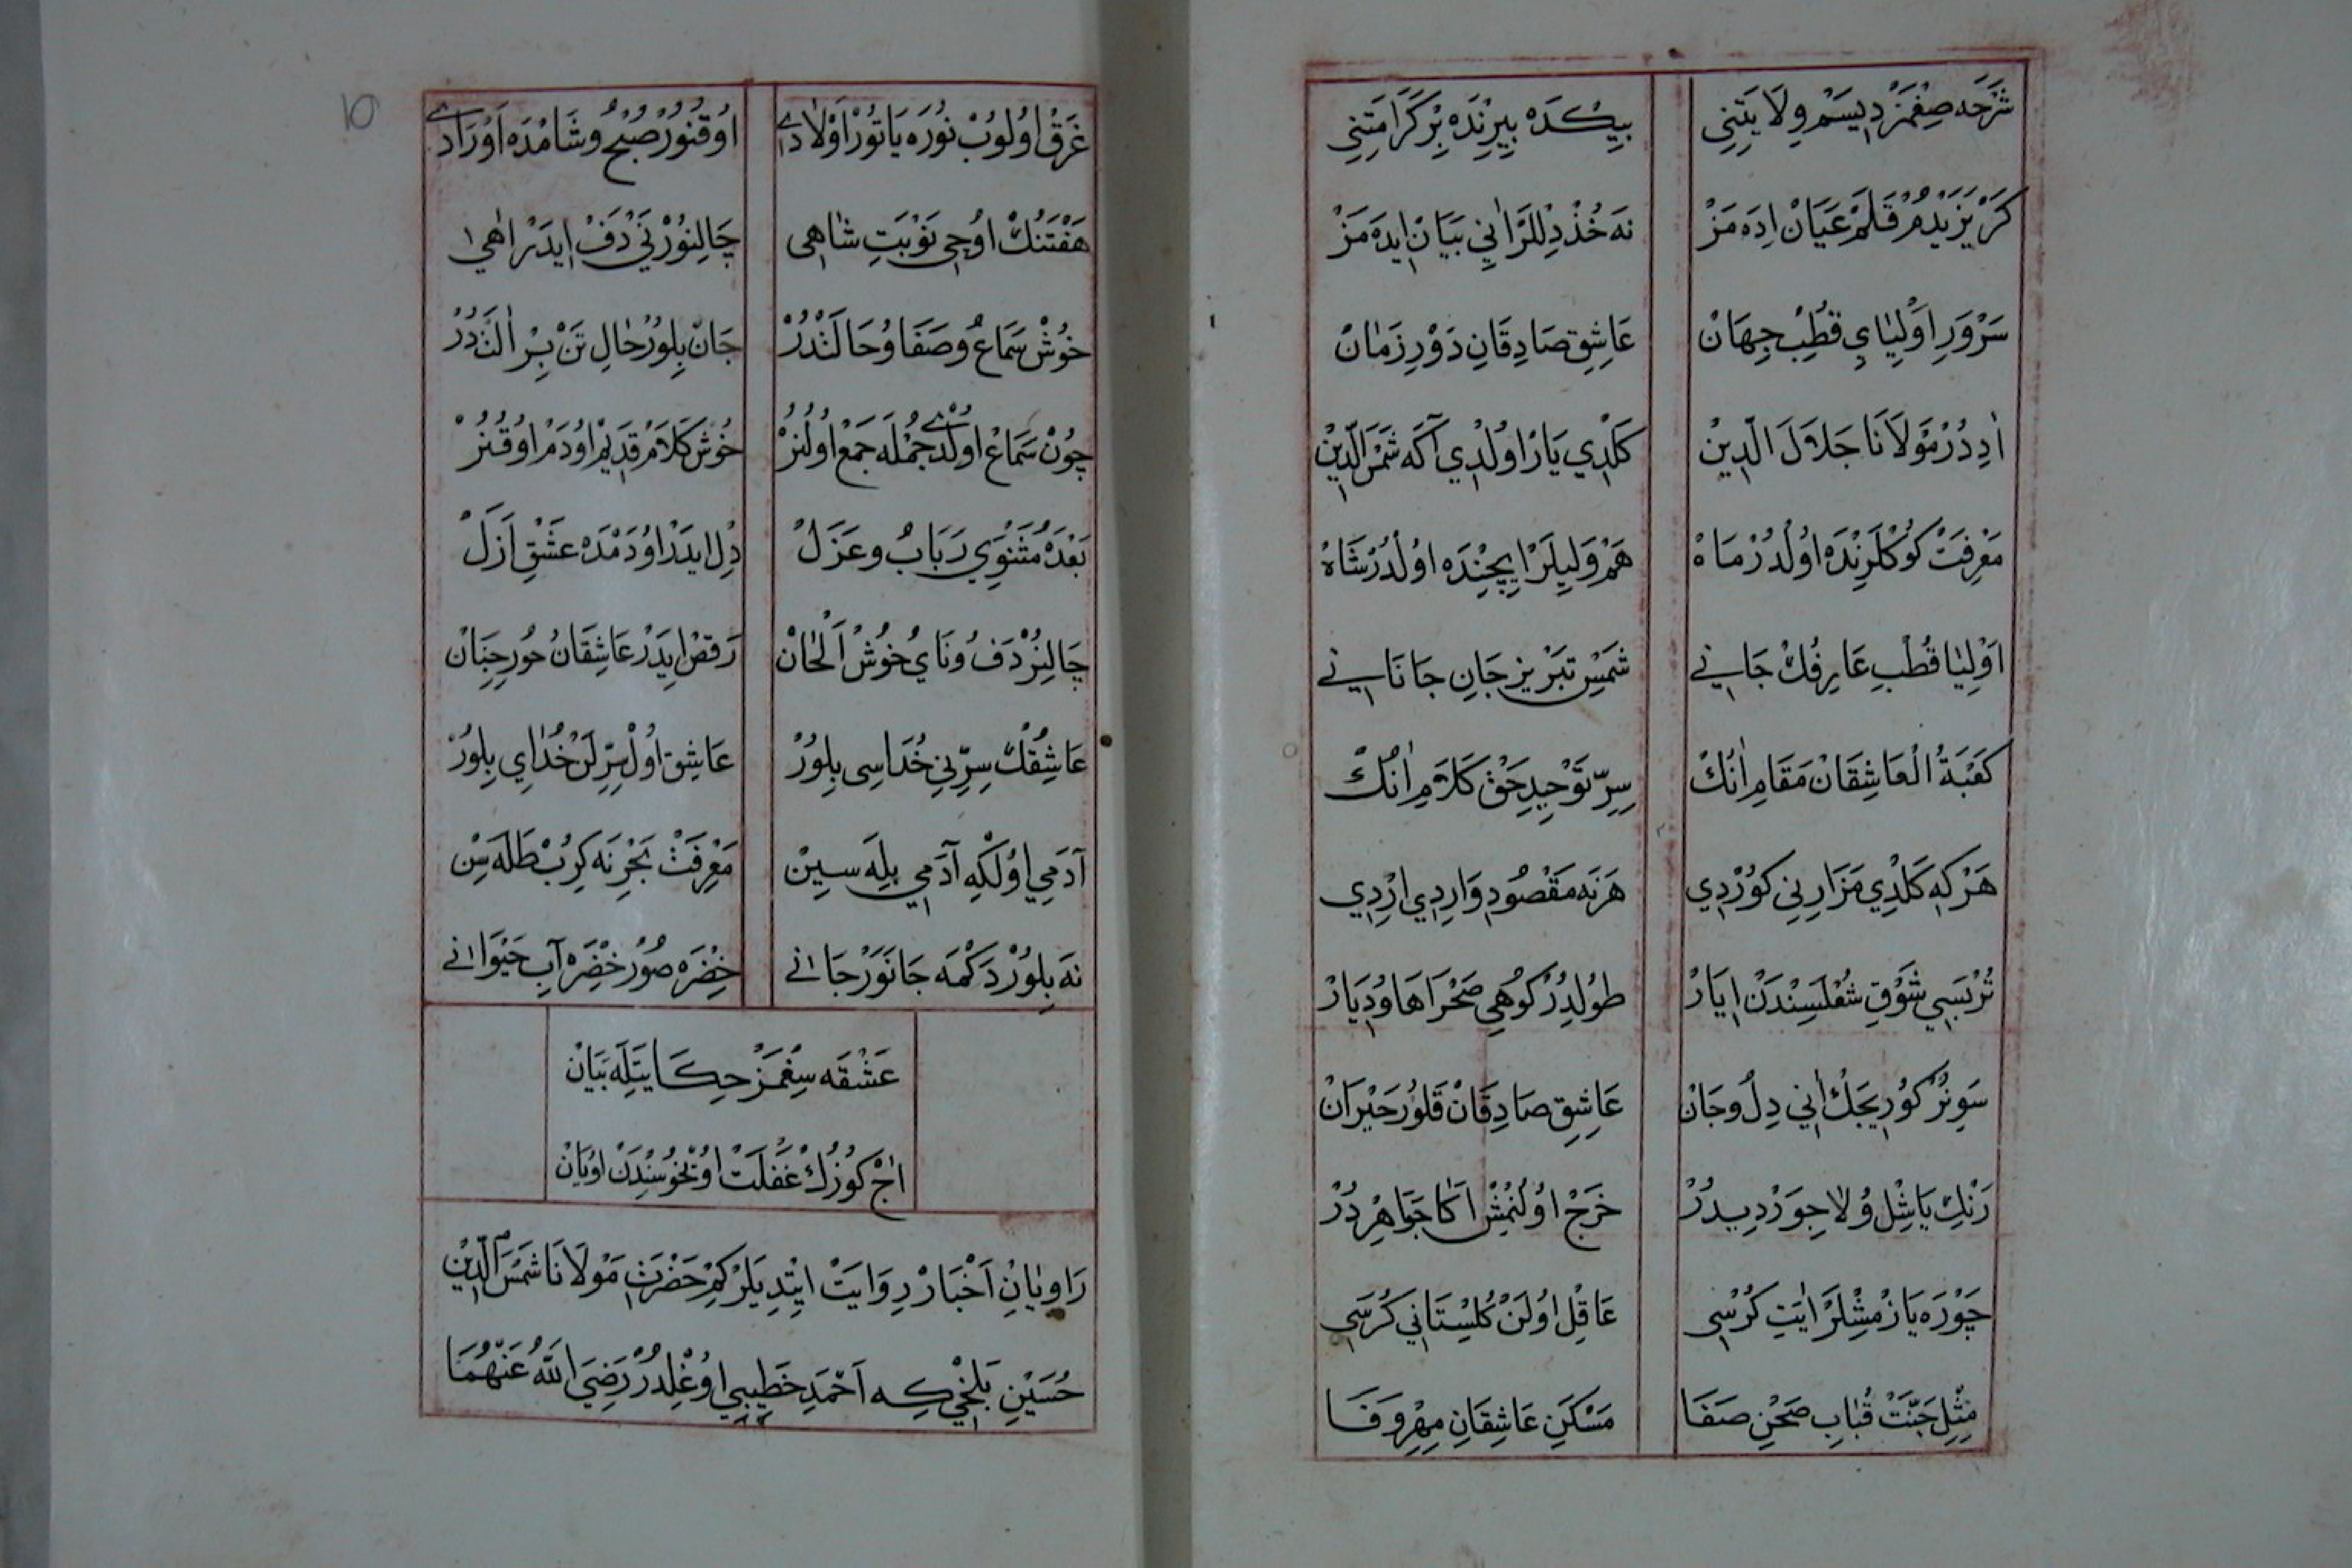 شَرْحَه صِغْمَزْ دِيسَمْ وِلَايَتِنِي بِيكْدَه بِيرِنْدَه بِرْ كَرَامَتِنِي
كَرْ يَزَيْدُمْ قَلَمْ عَيَانْ اِدَه مَزْ نَه خُذْ دِللَرْ اَنِي بَيَانْ اِيدَه مَزْ
سَرْوَرِ اَوْلِيَايِ قُطْبِ جِهَانْ عَاشِقِ صَادِقَانِ دَوْرِ زَمَانْ
اَدِدُرْ مَوْلَانَا جَلَالَ الدِّينْ كَلْدِي يَارْ اُولْدِي آكَه شَمْسَ الدِّينْ
مَعْرِفَتْ كُوكْلَرِنْدَه اُولْدُرْ مَاهْ هَمْ وَلِيلَرْ اِيچِنْدَه اُولْدُرْ شَاهْ
اَوْلِيَا قُطْبِ عَارِفُكْ جَانِي شَمْسِ تَبْرِيزِ جَانِ جَانَانِي
كَعْبَةُ الْعَاشِقَانْ مَقَامِ اَنُكْ سِرِّ تَوْحِيدِ حَقْ كَلَامِ اَنُكْ
هَرْ كِه كَلْدِي مَزَارِنِي كُورْدِي هَرْنَه مَقْصُودِ وَارِدِي اِرْدِي
تُرْبَسِي شَوْقِ شُعْلَسِنْدَنْ اَيَارْ طُولْدِرُرْ كُوهِي صَحْرَاهَا وُ دِيَارْ
سَوِنُرْ كُورِيجَكْ اَنِي دِلْ وجَانْ عَاشِقِ صَادِقَانْ قَلُورْ حَيْرَانْ
رَنْكِ يَاشِلْ وُ لَاجِوَرْدِيدُرْ خَرْجْ اُولُنْمُشْ اَكَا جَوَاهِرْ دُرْ
چَوْرَه يَازْمِشْلَرْ اٰيَتِ كُرْسِي عَاقِلْ اُولَنْ كُلِسْتَانِي كَرْسِي
مِثْلِ جَنَّتْ قُبَابِ صَحْنِ صَفَا مَسْكَنِ عَاشِقَانِ مِهْرُ وَفَا
غَرْقْ اُولُوبْ نُورَه يَاتُورْ اَوْلَادِي اُوقُنُورْ صُبْحُ وشَامْدَه اَوْرَادِي
هَفْتَنُكْ اُوچِي نَوْبَتِ شَاهِي چَالِنُورْ نَيْ دَفْ اِيدَرْ اٰهِي
خُوشْ سَمَاعُ وصَفَا وُ حَالَتْدُرْ جَانْ بِلُورْ حَالِ تَنْ بِرْ اٰلَتْدُرْ
چُونْ سَمَاعْ اُولْدِي جُمْلَه جَمْعْ اُولُنُرْ خُوشْ كَلَامْ قَدِيمْ اُودَمْ اُوقُنُرْ
بَعْدَه مَثْنَوِي رَبَابُ وغَزَلْ دِلْ اِيدَرْ اُودَمْدَه عَشْقِ اَزَلْ
چَالِنُرْ دَفُ ونَايُ خُوشْ اَلْحَانْ رَقصْ اِيدَرْ عَاشِقَانُ حُورِ جِنَانْ
عَاشِقُكْ سِرِّنِي خُدَاسِي بِلُورْ عَاشِقْ اُولْ سِرِّلَنْ خُدَايِ بِلُورْ
آدَمِي اُولْكِه آدَمِي بِلَه سِينْ مَعْرِفَتْ بَحْرِنَه كِرُبْ طَلَه سِنْ
نَه بِلُورْ دَكْمَه جَانَوَرْ جَانِي خِضْرَه صُورْ خِضْرَه آبِ حَيْوَانِي
عَشْقَه سِغْمَزْ حِكَايَتِلَه بَيَانْ
اَچْ كُوزُكْ غَفْلَتْ اُويْخُوسِنْدَنْ اُويَانْ
رَاوِيَانِ اَخْبَارْ رِوَايَتْ اِيتْدِيلَرْ كِمْ حَضْرَتِ مَوْلَانَا شَمْسَ الدِّينْ
حُسَيْنِ بَلْخِي كِه اَحْمَدِ خَطِيبِي اُوغْلِدُرْ رَضِيَ اللّٰهُ عَنْهُمَا